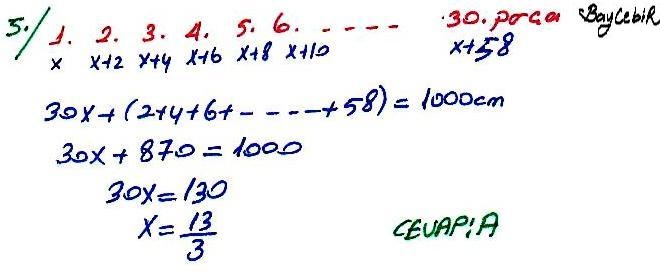 5./ 1. 2. 3. 4. 5. 6. ------ 30. parça BayCebir
x x+2 x+4 x+6 x+8 x+10 x+58
30x+(2+4+6+-----+58)=1000cm
30x+870=1000
30x=130
x=13/3
CEVAP:A